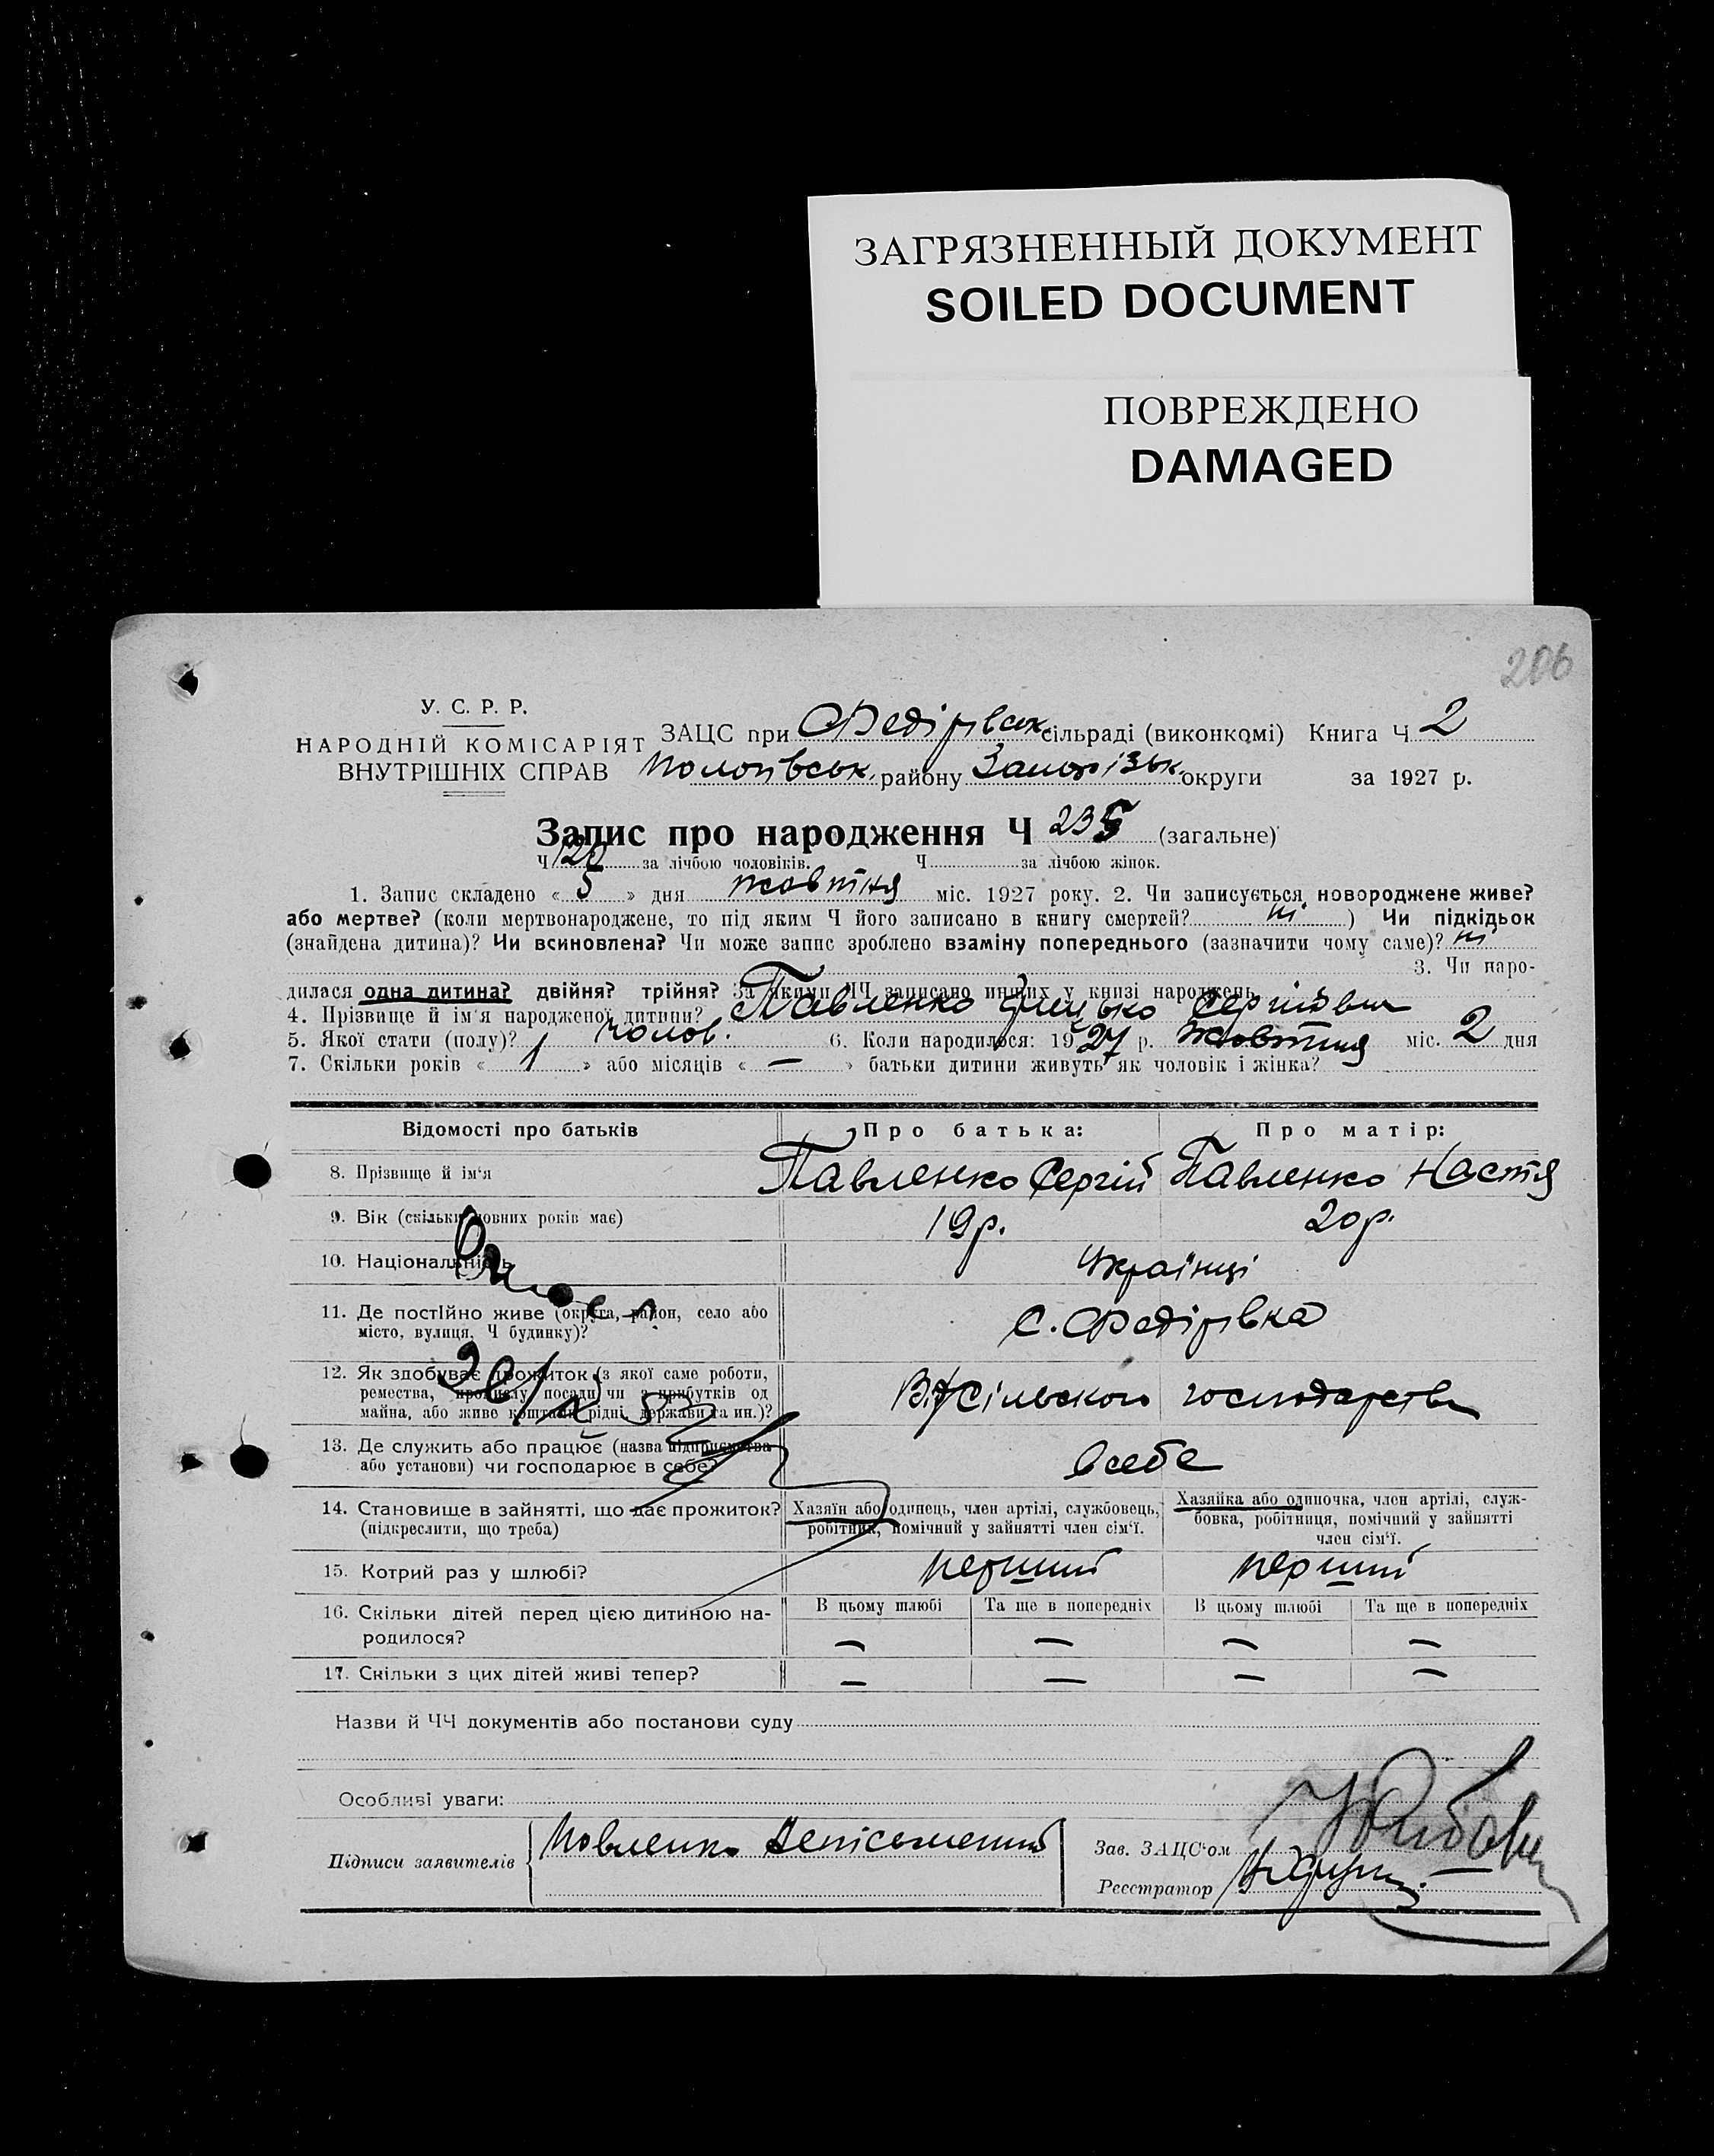 ЗАГРЯЗНЕННЫЙ ДОКУМЕНТ
SOILED DOCUMENT
ПОВРЕЖДЕНО
DAMAGED
206
У. С. Р. Р.
НАРОДНІЙ КОМІСАРІЯТ
ВНУТРІШНІХ СПРАВ
ЗАЦС при Федірівськ. сільраді (виконкомі) Книга Ч 2
Пологівськ. району Запоріэьк. округи за 1927 р.
Запис про народження Ч 235 (загальне)
Ч 120 за лічбою чоловіків. Ч за лічбою жінок.
1. Запис складено « 5 » дня жовтня міс. 1927 року. 2. Чи записується новороджене живе?
або мертве? (коли мертвонароджене, то під яким Ч його записано в книгу смертей? ні ) Чи підкідьок
(знайдена дитина)? Чи всиновлена? Чи може запис зроблено взаміну попереднього (зазначити чому саме)? ні
3. Чи наро-
дилася одна дитина? двійня? трійня? За якими ЧЧ записано инших у книзі народжень
4. Прізвище й ім'я народженої дитини? Павленко Грицько Сергійович
5. Якої стати (полу)? чолов. 6. Коли народилося: 1927 р. Жовтня міс. 2 дня
7. Скільки років « 1 » або місяців « — » батьки дитини живуть як чоловік і жінка?
Відомості про батьків Про батька: Про матір:
8. Прізвище й ім'я Павленко Сергій Павленко Настя
9. Вік (скільки повних років має) 19 р. 20 р.
10. Національність Українці
11. Де постійно живе (округа, район, село або
місто, вулиця, Ч будинку)? с. Федірівка
12. Як здобуває прожиток (з якої саме роботи,
ремества, промислу посади чи з прибутків од
майна, або живе коштами рідні, держави та ин.)? Від сільского господарства
13. Де служить або працює (назва підприємства
або установи) чи господарює в себе? в себе
14. Становище в зайнятті, що дає прожиток?
(підкреслити, що треба)
Хазяїн або одинець, член артілі, службовець,
робітник, помічний у зайнятті член сім'ї.
Хазяйка або одиночка, член артілі, служ-
бовка, робітниця, помічний у зайнятті
член сім'ї.
15. Котрий раз у шлюбі? перший перший
16. Скільки дітей перед цією дитиною на-
родилося?
В цьому шлюбі Та ще в попередніх В цьому шлюбі Та ще в попередніх
— — — —
17. Скільки з цих дітей живі тепер? — — — —
Назви й ЧЧ документів або постанови суду
Особливі уваги:
Підписи заявителів Повленко Непісьменний
Зав. ЗАЦС'ом
Реєстратор